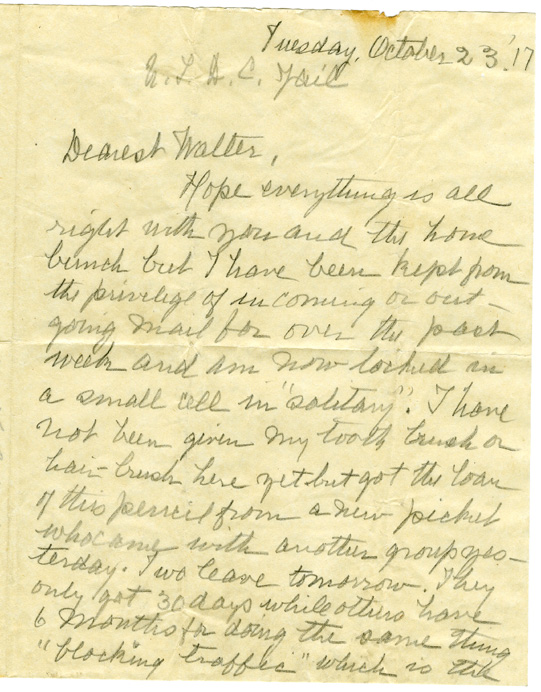 Tuesday, October 23, '17
U. S. D. C. Jail
Dearest Walter,
Hope everything is all
right with you and the home
bunch but I have been kept from
the privilege of in coming or out-
going mail for over the past
week and am now locked in
a small cell in "solitary". I have
not been given my tooth brush or
hair-brush here yet but got the loan
of this pencil from a new picket
who came with another group yes-
terday. Two leave tomorrow. They
only got 30 days while others have
6 months for doing the same thing
"blocking traffic" which is the